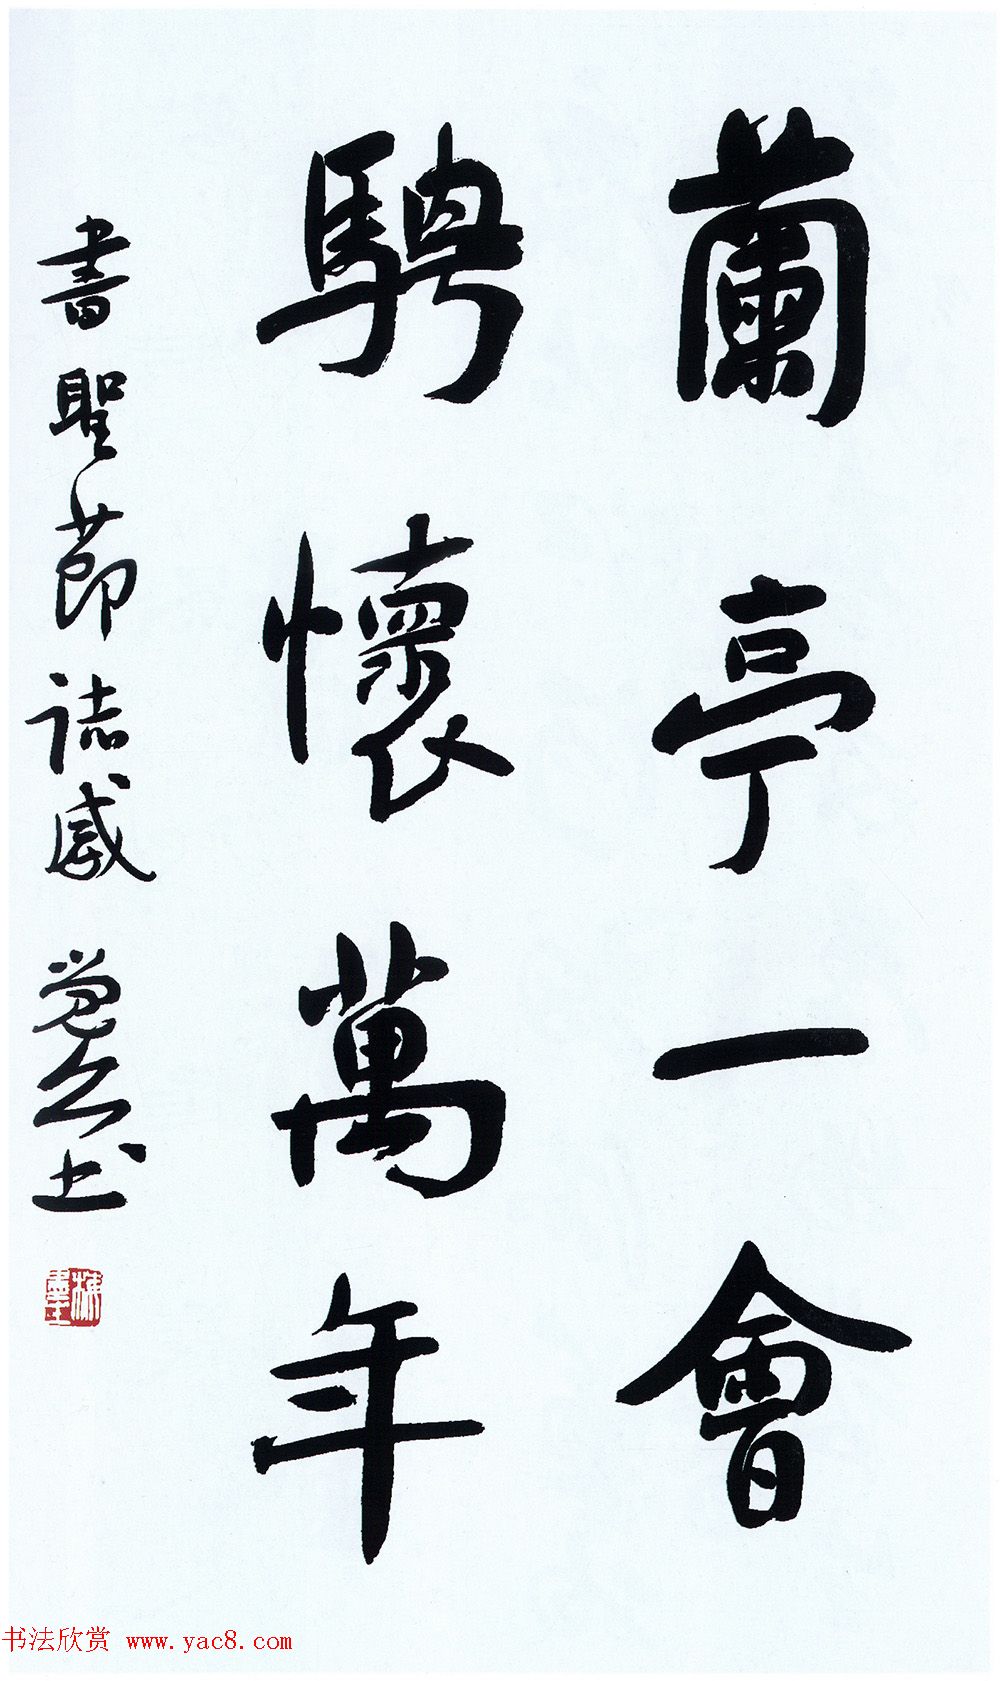 蘭亭一會
騁懷萬年
書聖節誌感 覺公書
书法欣赏 www.yac8.com